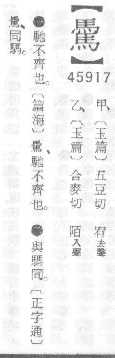 45917
甲、〔玉篇〕五豆切 宥去聲
乙、〔玉篇〕合麥切 陌入聲
●馳不齊也。〔篇海〕、馳不齊也。●與同。〔正字通〕
、同。